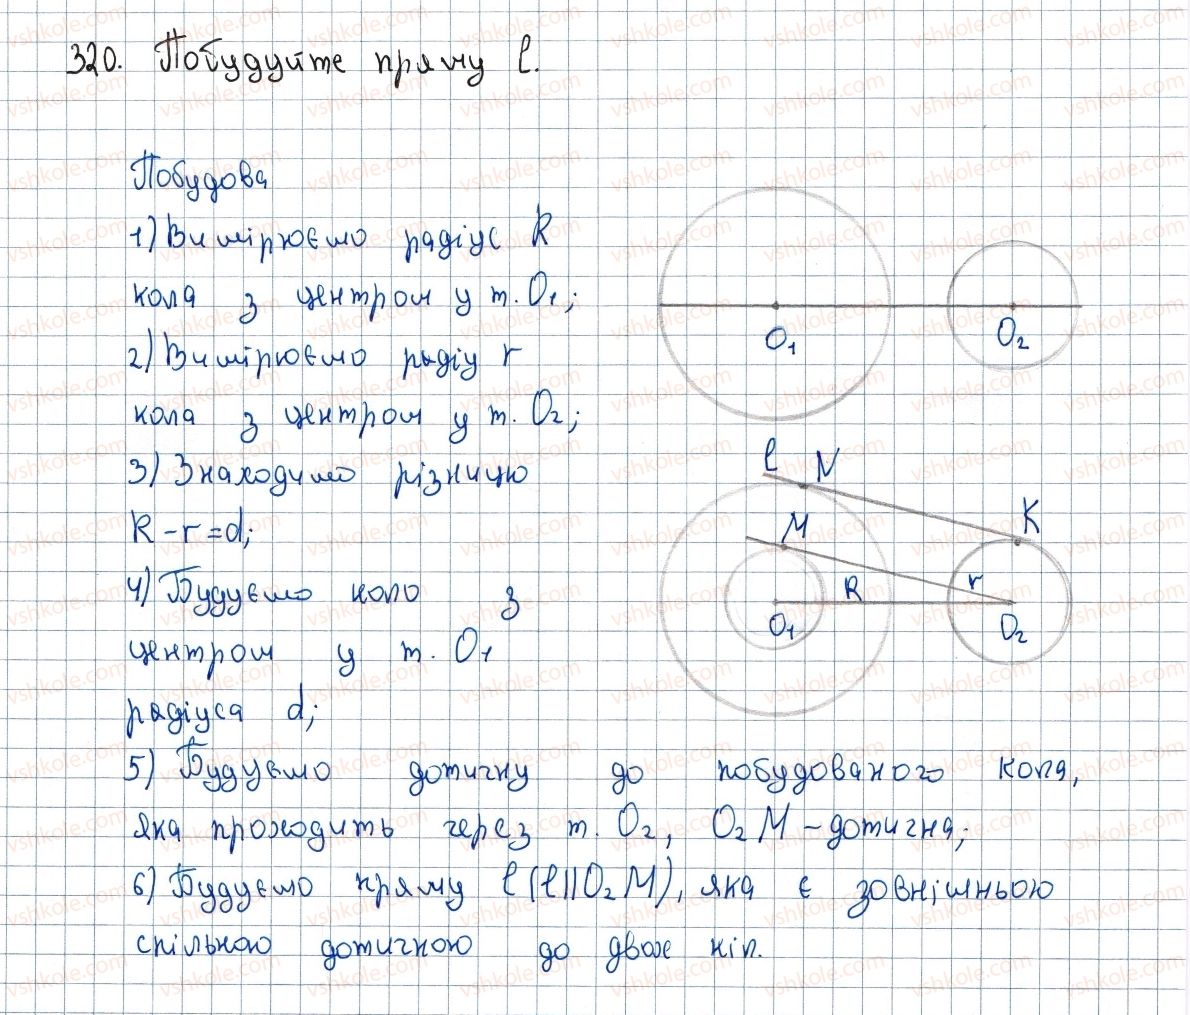 320. Побудуйте пряму l.
Побудова
1) Вимірюємо радіус R
кола з центром у т. O₁;
2) Вимірюємо радіу r
кола з центром у т. O₂;
3) Знаходимо різницю
R - r = d;
4) Будуємо коло з
центром у т. O₁
радіуса d;
5) Будуємо дотичну до побудованого кола,
яка проходить через т. O₂, O₂M - дотична;
6) Будуємо пряму l (l || O₂M), яка є зовнішньою
спільною дотичною до двох кіл.
O₁ O₂
l N
M K
R r
O₁ O₂
vshkole.com